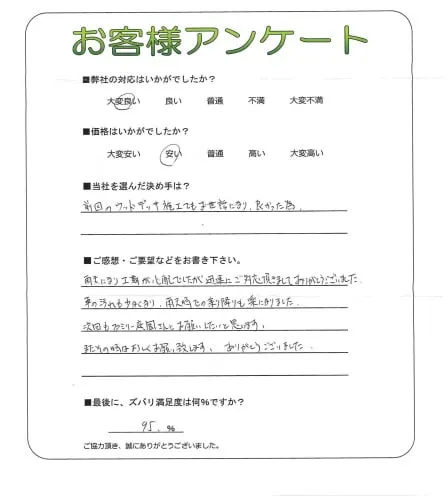 お客様アンケート
■弊社の対応はいかがでしたか?
大変良い 良い 普通 不満 大変不満
■価格はいかがでしたか?
大変安い 安い 普通 高い 大変高い
■当社を選んだ決め手は?
前回のウッドデッキ施工でもお世話になり、良かった為。
■ご感想・ご要望などをお書き下さい。
雨天になり工事が心配でしたが迅速にご対応頂きましてありがとうございました。
車の汚れも少なくなり、雨天時での乗り降りも楽になりました。
次回もファミリー庭園さんにお願いしたいと思います。
またその時はよろしくお願い致します。ありがとうございました。
■最後に、ズバリ満足度は何%ですか?
95. %
ご協力頂き、誠にありがとうございました。